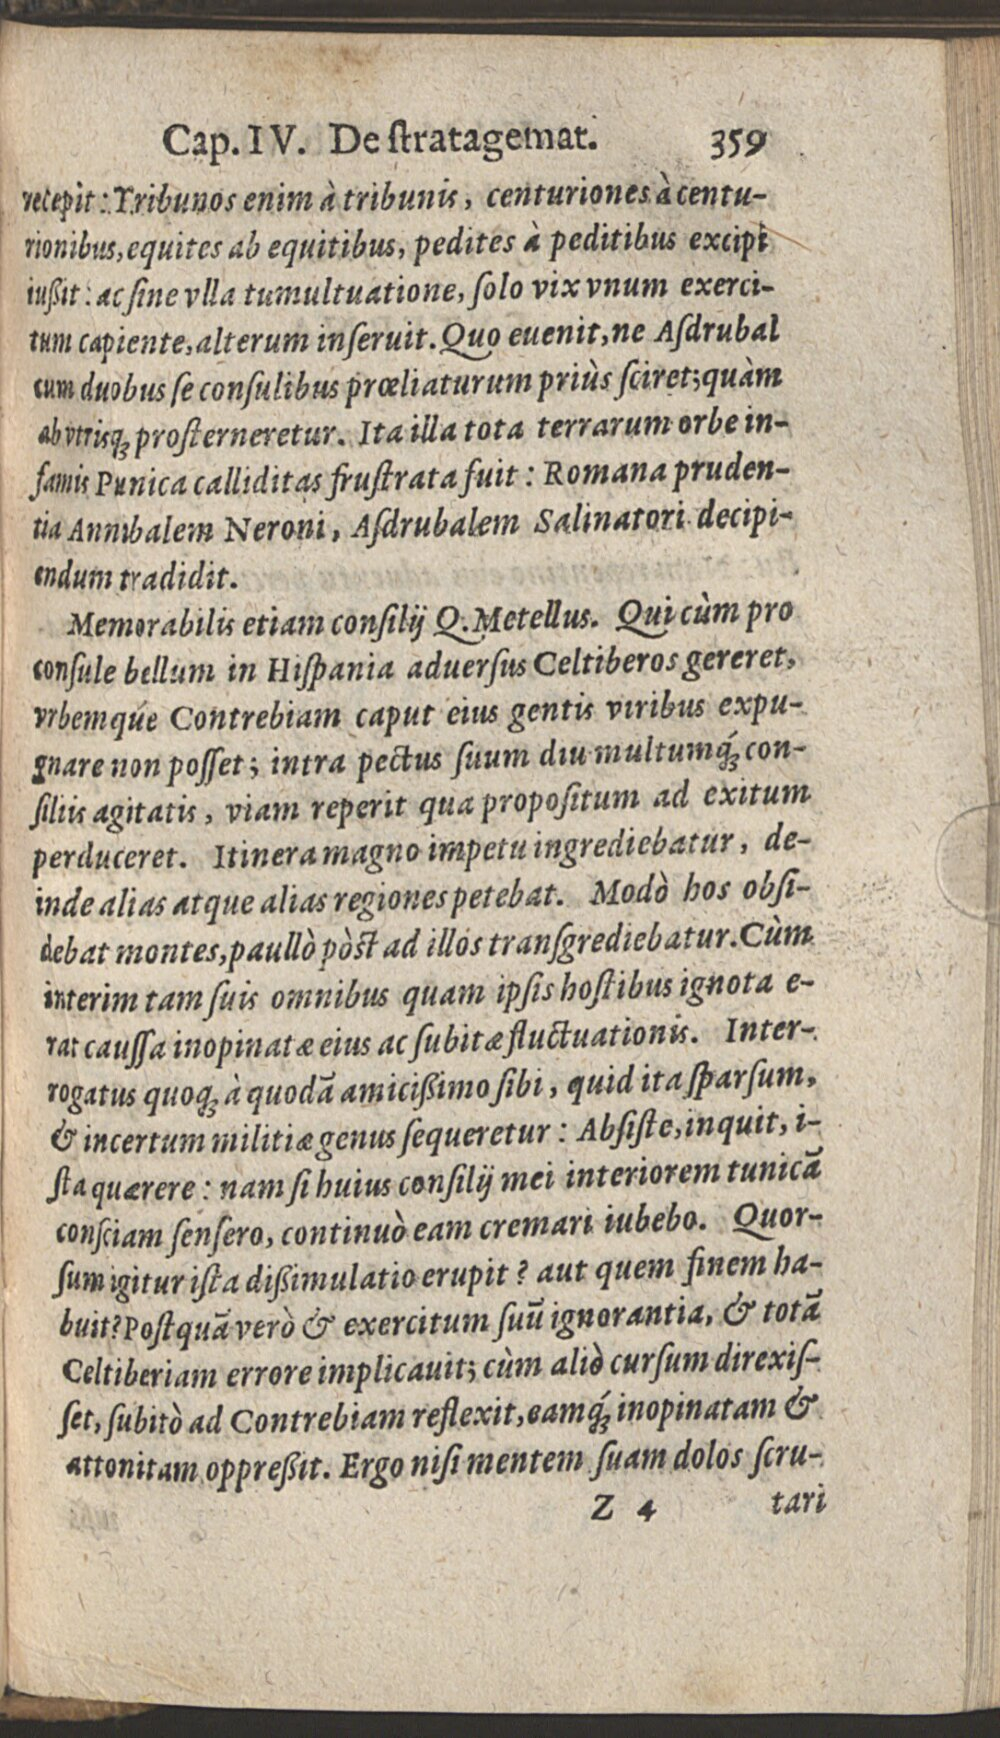 Cap. IV. De ſtratagemat. 359
recepit: Tribunos enim à tribunis, centuriones à centu-
rionibus, equites ab equitibus, pedites à peditibus excipi
iußit: ac ſine vlla tumultuatione, ſolo vix vnum exerci-
tum capiente, alterum inſeruit. Quo euenit, ne Aſdrubal
cum duobus ſe conſulibus prœliaturum priùs ſciret; quàm
ab vtrisq́ꝫ proſterneretur. Ita illa tota terrarum orbe in-
famis Punica calliditas fruſtrata fuit: Romana pruden-
tia Annibalem Neroni, Aſdrubalem Salinatori decipi-
endum tradidit.
Memorabilis etiam conſilij Q. Metellus. Qui cùm pro
conſule bellum in Hiſpania aduerſus Celtiberos gereret,
vrbemqúe Contrebiam caput eius gentis viribus expu-
gnare non poſſet; intra pectus ſuum diu multumq́ꝫ con-
ſiliis agitatis, viam reperit qua propoſitum ad exitum
perduceret. Itinera magno impetu ingrediebatur, de-
inde alias atque alias regiones petebat. Modò hos obſi-
debat montes, paullò pòſt ad illos tranſgrediebatur. Cùm
interim tam ſuis omnibus quam ipſis hoſtibus ignota e-
rat cauſſa inopinatæ eius ac ſubitæ fluctuationis. Inter-
rogatus quoqꝫ à quodā amicißimo ſibi, quid ita ſparſum,
& incertum militiæ genus ſequeretur: Abſiſte, inquit, i-
ſta quærere: nam ſi huius conſilij mei interiorem tunicā
conſciam ſenſero, continuò eam cremari iubebo. Quor-
ſum igitur iſta dißimulatio erupit? aut quem finem ha-
buit? Poſtquā verò & exercitum ſuū ignorantia, & totā
Celtiberiam errore implicauit; cùm aliò curſum direxiſ-
ſet, ſubitò ad Contrebiam reflexit, eamq́ꝫ inopinatam &
attonitam oppreßit. Ergo niſi mentem ſuam dolos ſcru-
Z 4 tari